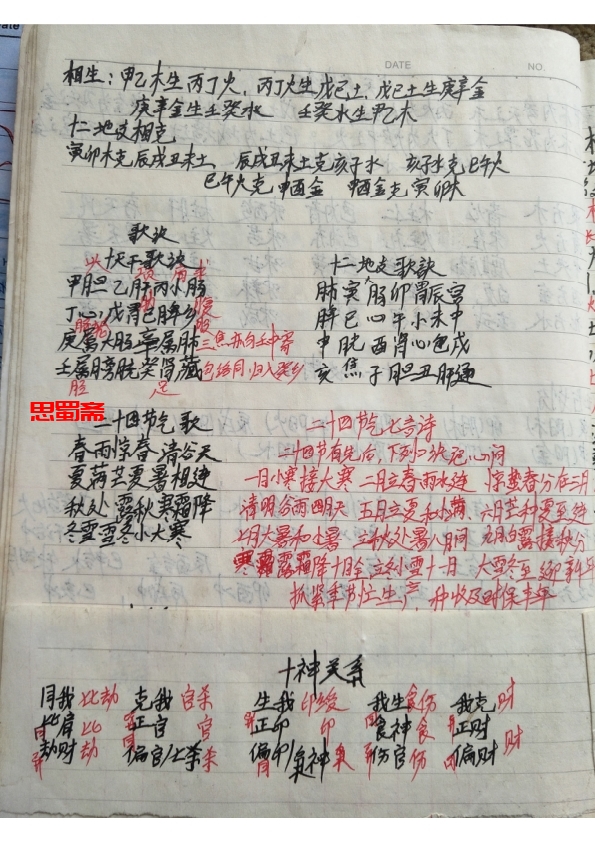 DATE NO.
相生：甲乙木生丙丁火，丙丁火生戊己土，戊己土生庚辛金
庚辛金生壬癸水 壬癸水生甲乙木
十二地支相克
寅卯木克辰戌丑未土，辰戌丑未土克亥子水 亥子水克巳午火
巳午火克申酉金 申酉金克寅卯木
歌诀
十天干歌诀
甲胆乙肝丙小肠
丁心戊胃己脾乡
庚属大肠辛属肺
三焦亦向壬中寄
壬属膀胱癸肾藏
包络同归入癸乡
十二地支歌诀
肺寅大肠卯胃辰宫
脾巳心午小未中
申胱酉肾心包戌
亥焦子胆丑肝通
思蜀斋
二十四节气歌
春雨惊春清谷天
夏满芒夏暑相连
秋处露秋寒霜降
冬雪雪冬小大寒
二十四节气七言诗
二十四节有先后，下列口诀记心间
一月小寒接大寒 二月立春雨水连 惊蛰春分在三月
清明谷雨四月天 五月立夏和小满，六月芒种夏至连
七月大暑和小暑 立秋处暑八月间 九月白露接秋分
寒露霜降十月全 立冬小雪十一月 大雪冬至迎新年
抓紧季节忙生产，种收及时保丰年
十神关系
同我 比劫 克我 官杀 生我 印绶 我生 食伤 我克 财
比肩 比 正官 官 正印 印 食神 食 正财 财
劫财 劫 偏官/七杀 杀 偏印/枭神 枭 伤官 伤 偏财